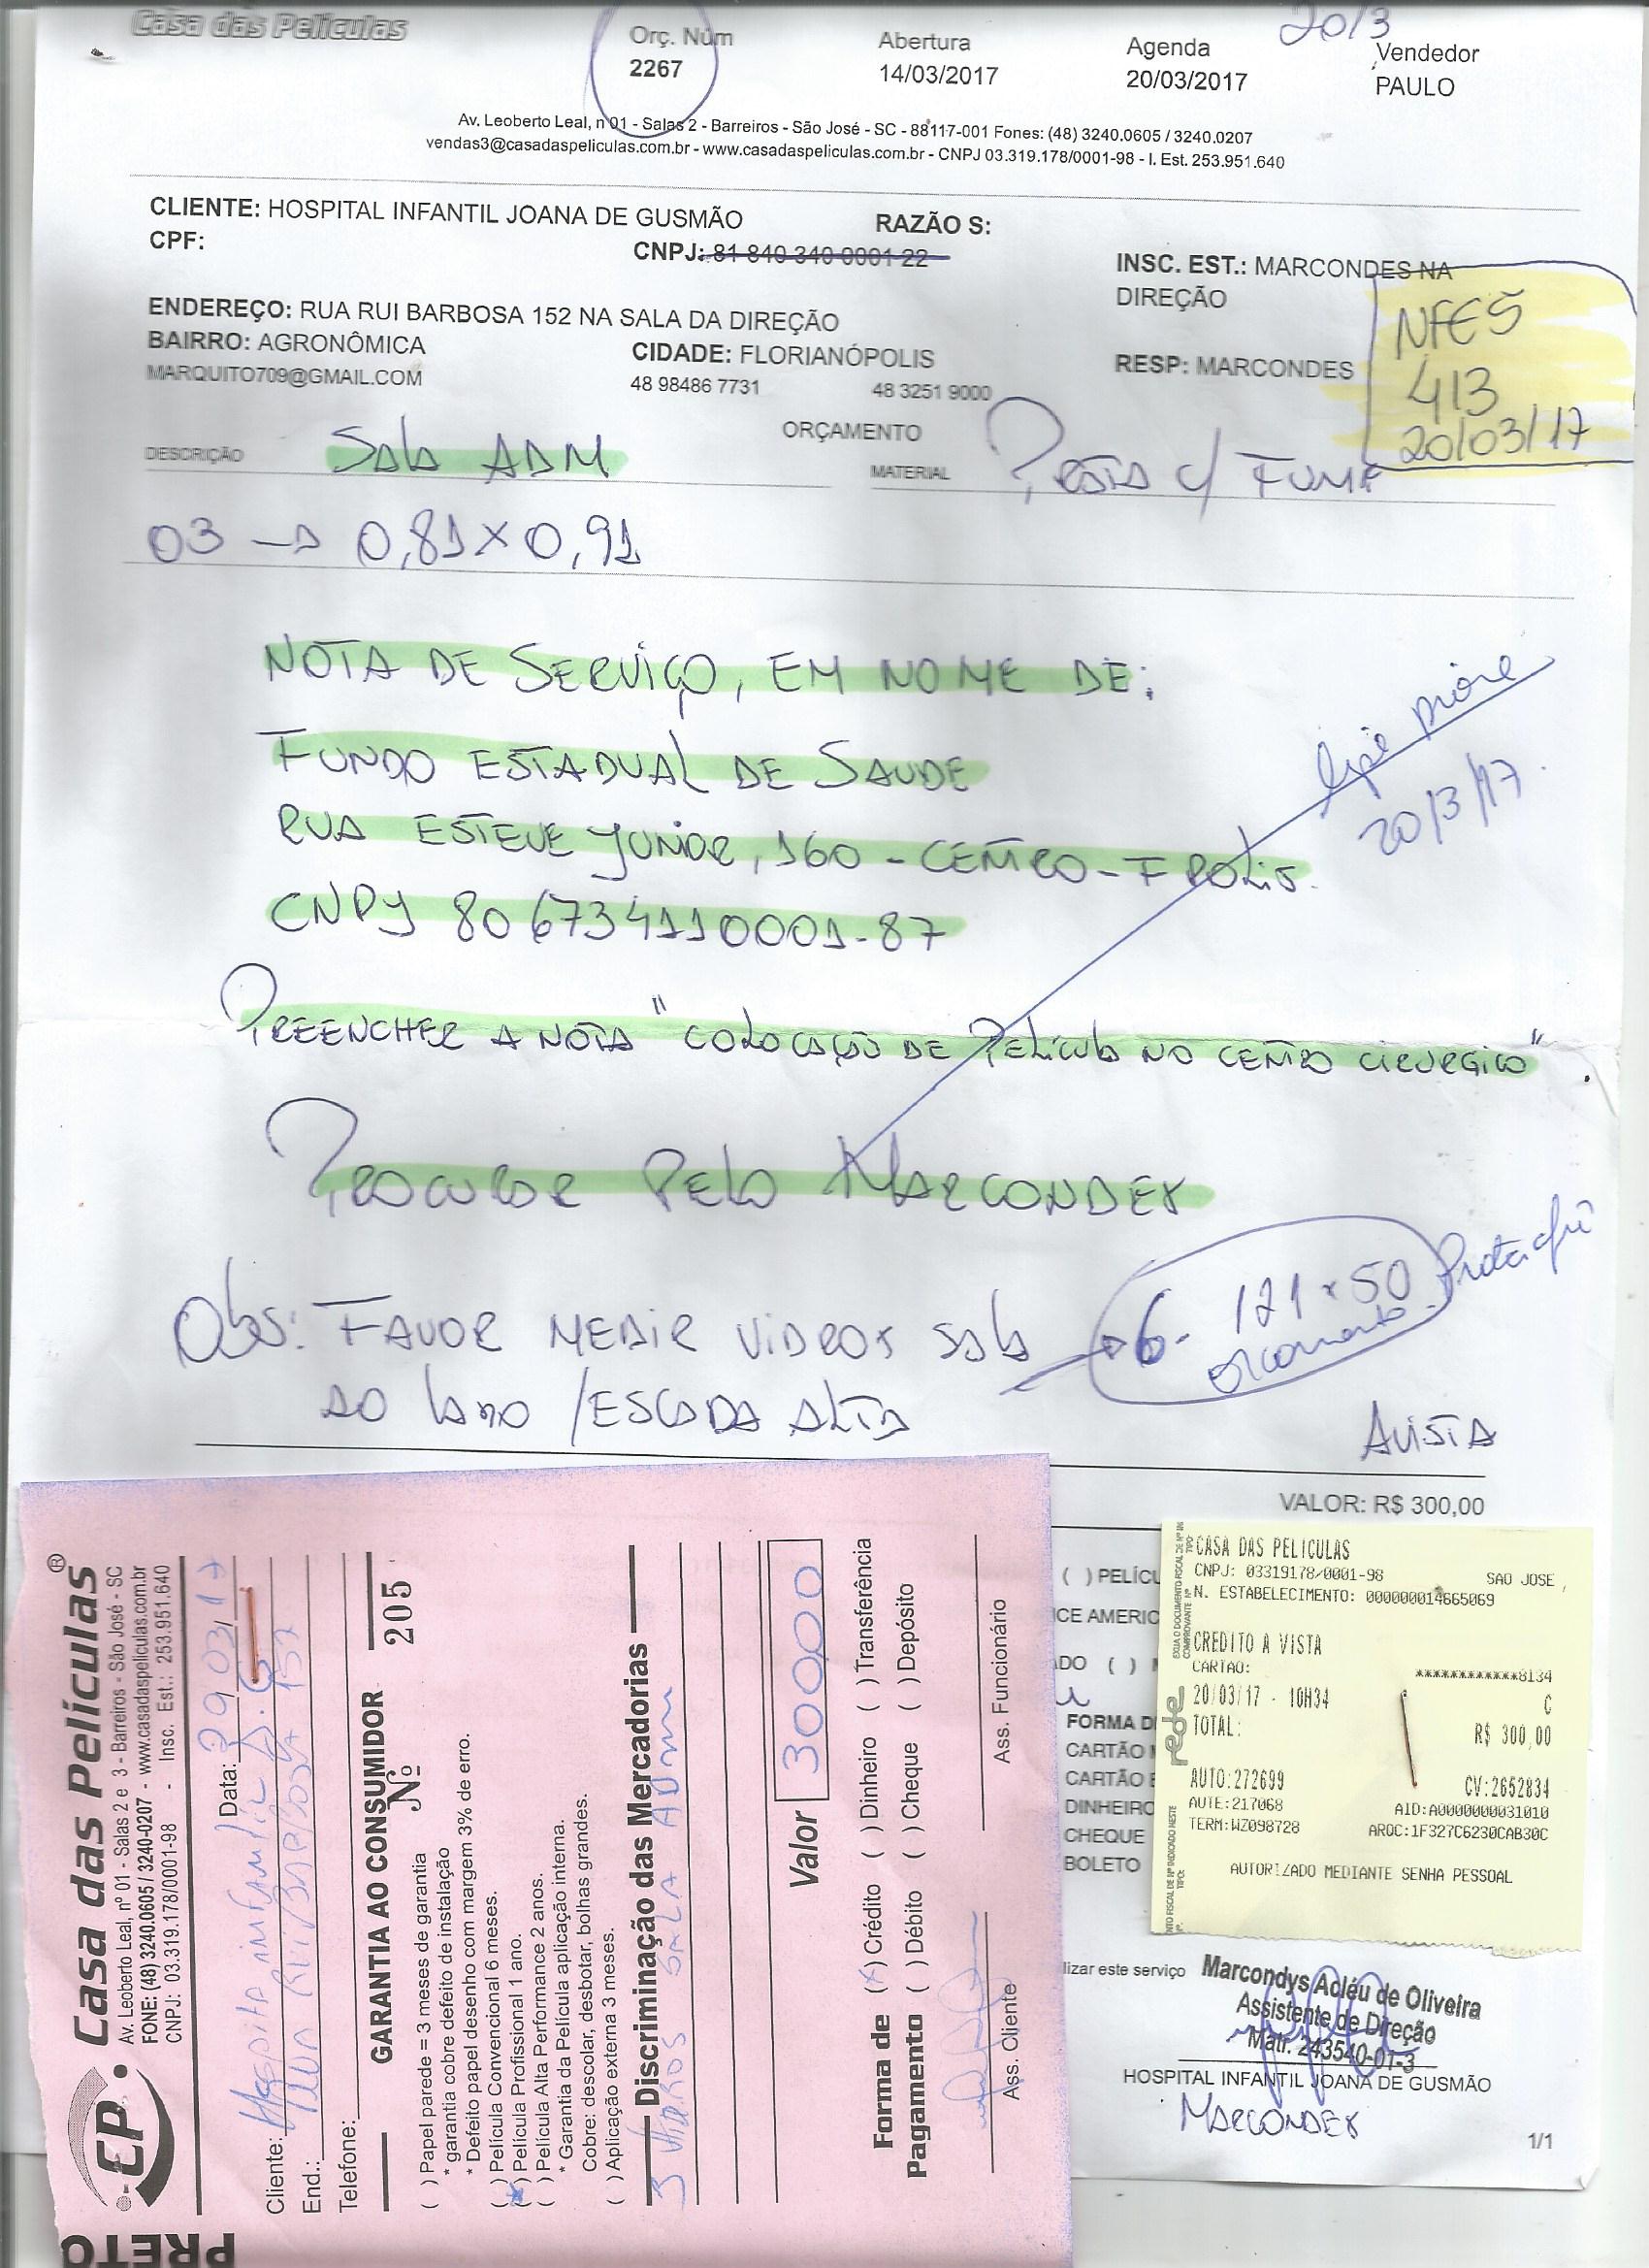 Casa das Películas
Orç. Núm
2267
Abertura
14/03/2017
Agenda
20/03/2017
20/3
Vendedor
PAULO
Av. Leoberto Leal, n 01 - Salas 2 - Barreiros - São José - SC - 88117-001 Fones: (48) 3240.0605 / 3240.0207
vendas3@casadaspeliculas.com.br - www.casadaspeliculas.com.br - CNPJ 03.319.178/0001-98 - I. Est. 253.951.640
CLIENTE: HOSPITAL INFANTIL JOANA DE GUSMÃO
RAZÃO S:
CPF:
CNPJ: 81 840 340 0001 22
INSC. EST.: MARCONDES NA
DIREÇÃO
ENDEREÇO: RUA RUI BARBOSA 152 NA SALA DA DIREÇÃO
BAIRRO: AGRONÔMICA
CIDADE: FLORIANÓPOLIS
RESP: MARCONDES
MARQUITO709@GMAIL.COM
48 98486 7731
48 3251 9000
NFES
413
20/03/17
ORÇAMENTO
DESCRIÇÃO
Sala ADM
MATERIAL
Prata c/ Fume
03 → 0,81 x 0,91
NOTA DE SERVIÇO, EM NOME DE:
FUNDO ESTADUAL DE SAUDE
RUA ESTEVE JUNIOR, 160 - CENTRO - FPOLIS.
CNPJ 80673411 0001-87
PREENCHER A NOTA "COLOCAÇÃO DE PELÍCULA NO CENTRO CIRURGICO".
20/3/17.
PROCURAR PELO MARCONDES
Obs: FAVOR MEDIR VIDROS SALA
AO LADO / ESCADA ALTA
6 - 121 x 50
orcamento
AVISTA
VALOR: R$ 300,00
( ) PELÍCU
ICE AMERIC
ADO ( )
FORMA D
CARTÃO
CARTÃO
DINHEIRO
CHEQUE
BOLETO
CASA DAS PELICULAS
CNPJ: 03319178/0001-98 SAO JOSE
N. ESTABELECIMENTO: 000000014665069
CREDITO A VISTA
CARTAO: ************8134
20/03/17 - 10H34 C
TOTAL: R$ 300,00
AUTO:272699 CV:2652834
AUTE:217068 AID:A0000000031010
TERM:WZ098728 ARQC:1F327C6230CAB30C
AUTORIZADO MEDIANTE SENHA PESSOAL
rede
lizar este serviço
Marcondys Acláu de Oliveira
Assistente de Direção
Matr. 243540-01-3
HOSPITAL INFANTIL JOANA DE GUSMÃO
MARCONDES
1/1
CP. Casa das Películas®
Av. Leoberto Leal, nº 01 - Salas 2 e 3 - Barreiros - São José - SC
FONE: (48) 3240.0605 / 3240-0207 - www.casadaspeliculas.com.br
CNPJ: 03.319.178/0001-98 - Insc. Est.: 253.951.640
Data: 29 03/17
Cliente: Hospital infantil J. G
End.: Rua Rui Barbosa 152
Telefone:
GARANTIA AO CONSUMIDOR
Nº 205
( ) Papel parede = 3 meses de garantia
* garantia cobre defeito de instalação
* Defeito papel desenho com margem 3% de erro.
( ) Película Convencional 6 meses.
(x) Película Profissional 1 ano.
( ) Película Alta Performance 2 anos.
* Garantia da Película aplicação interna.
Cobre: descolar, desbotar, bolhas grandes.
( ) Aplicação externa 3 meses.
Discriminação das Mercadorias
3 Vidros SALA ADM
Valor 300,00
Forma de Pagamento
(x) Crédito ( ) Dinheiro ( ) Transferência
( ) Débito ( ) Cheque ( ) Depósito
Ass. Cliente
Ass. Funcionário
PRETO